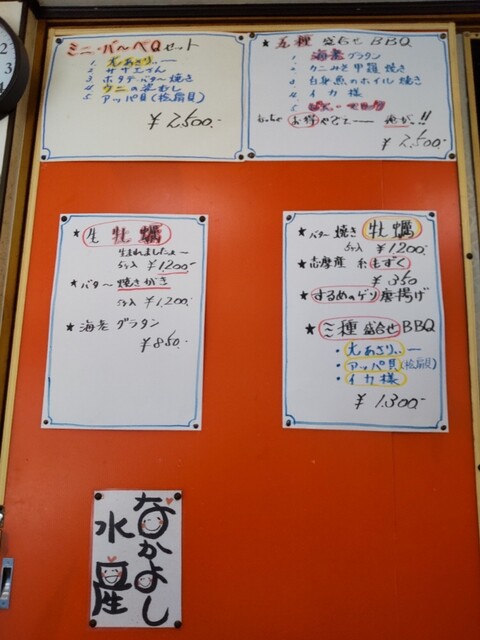 ミニ・バーベQセット
1. 大あさり、、ー
2. サザエさん
3. ホタテ・バター焼き
4. ウニの
5. アッパ貝(桧扇貝)
¥2,500.-
★ 五種盛合せBBQ
1. 海老グラタン
2. カニみそ甲羅焼き
3. 白身魚のホイル焼き
4. イカ様
5.
¥2,500.-
★ 生牡蠣
生まれましたョ〜
5ヶ入 ¥1200.-
★ バター焼きがき
5ヶ入 ¥1,200.
★ 海老グラタン
¥850.-
★ バター焼き牡蠣
5ヶ入 ¥1200.-
★ 志摩産 糸もずく
¥350
★ するめゲソ唐揚げ
★ 三種盛合せBBQ
・大あさり、、ー
・アッパ貝(桧扇貝)
・イカ様
¥1,300.-
なかよし
水産
2
3
4